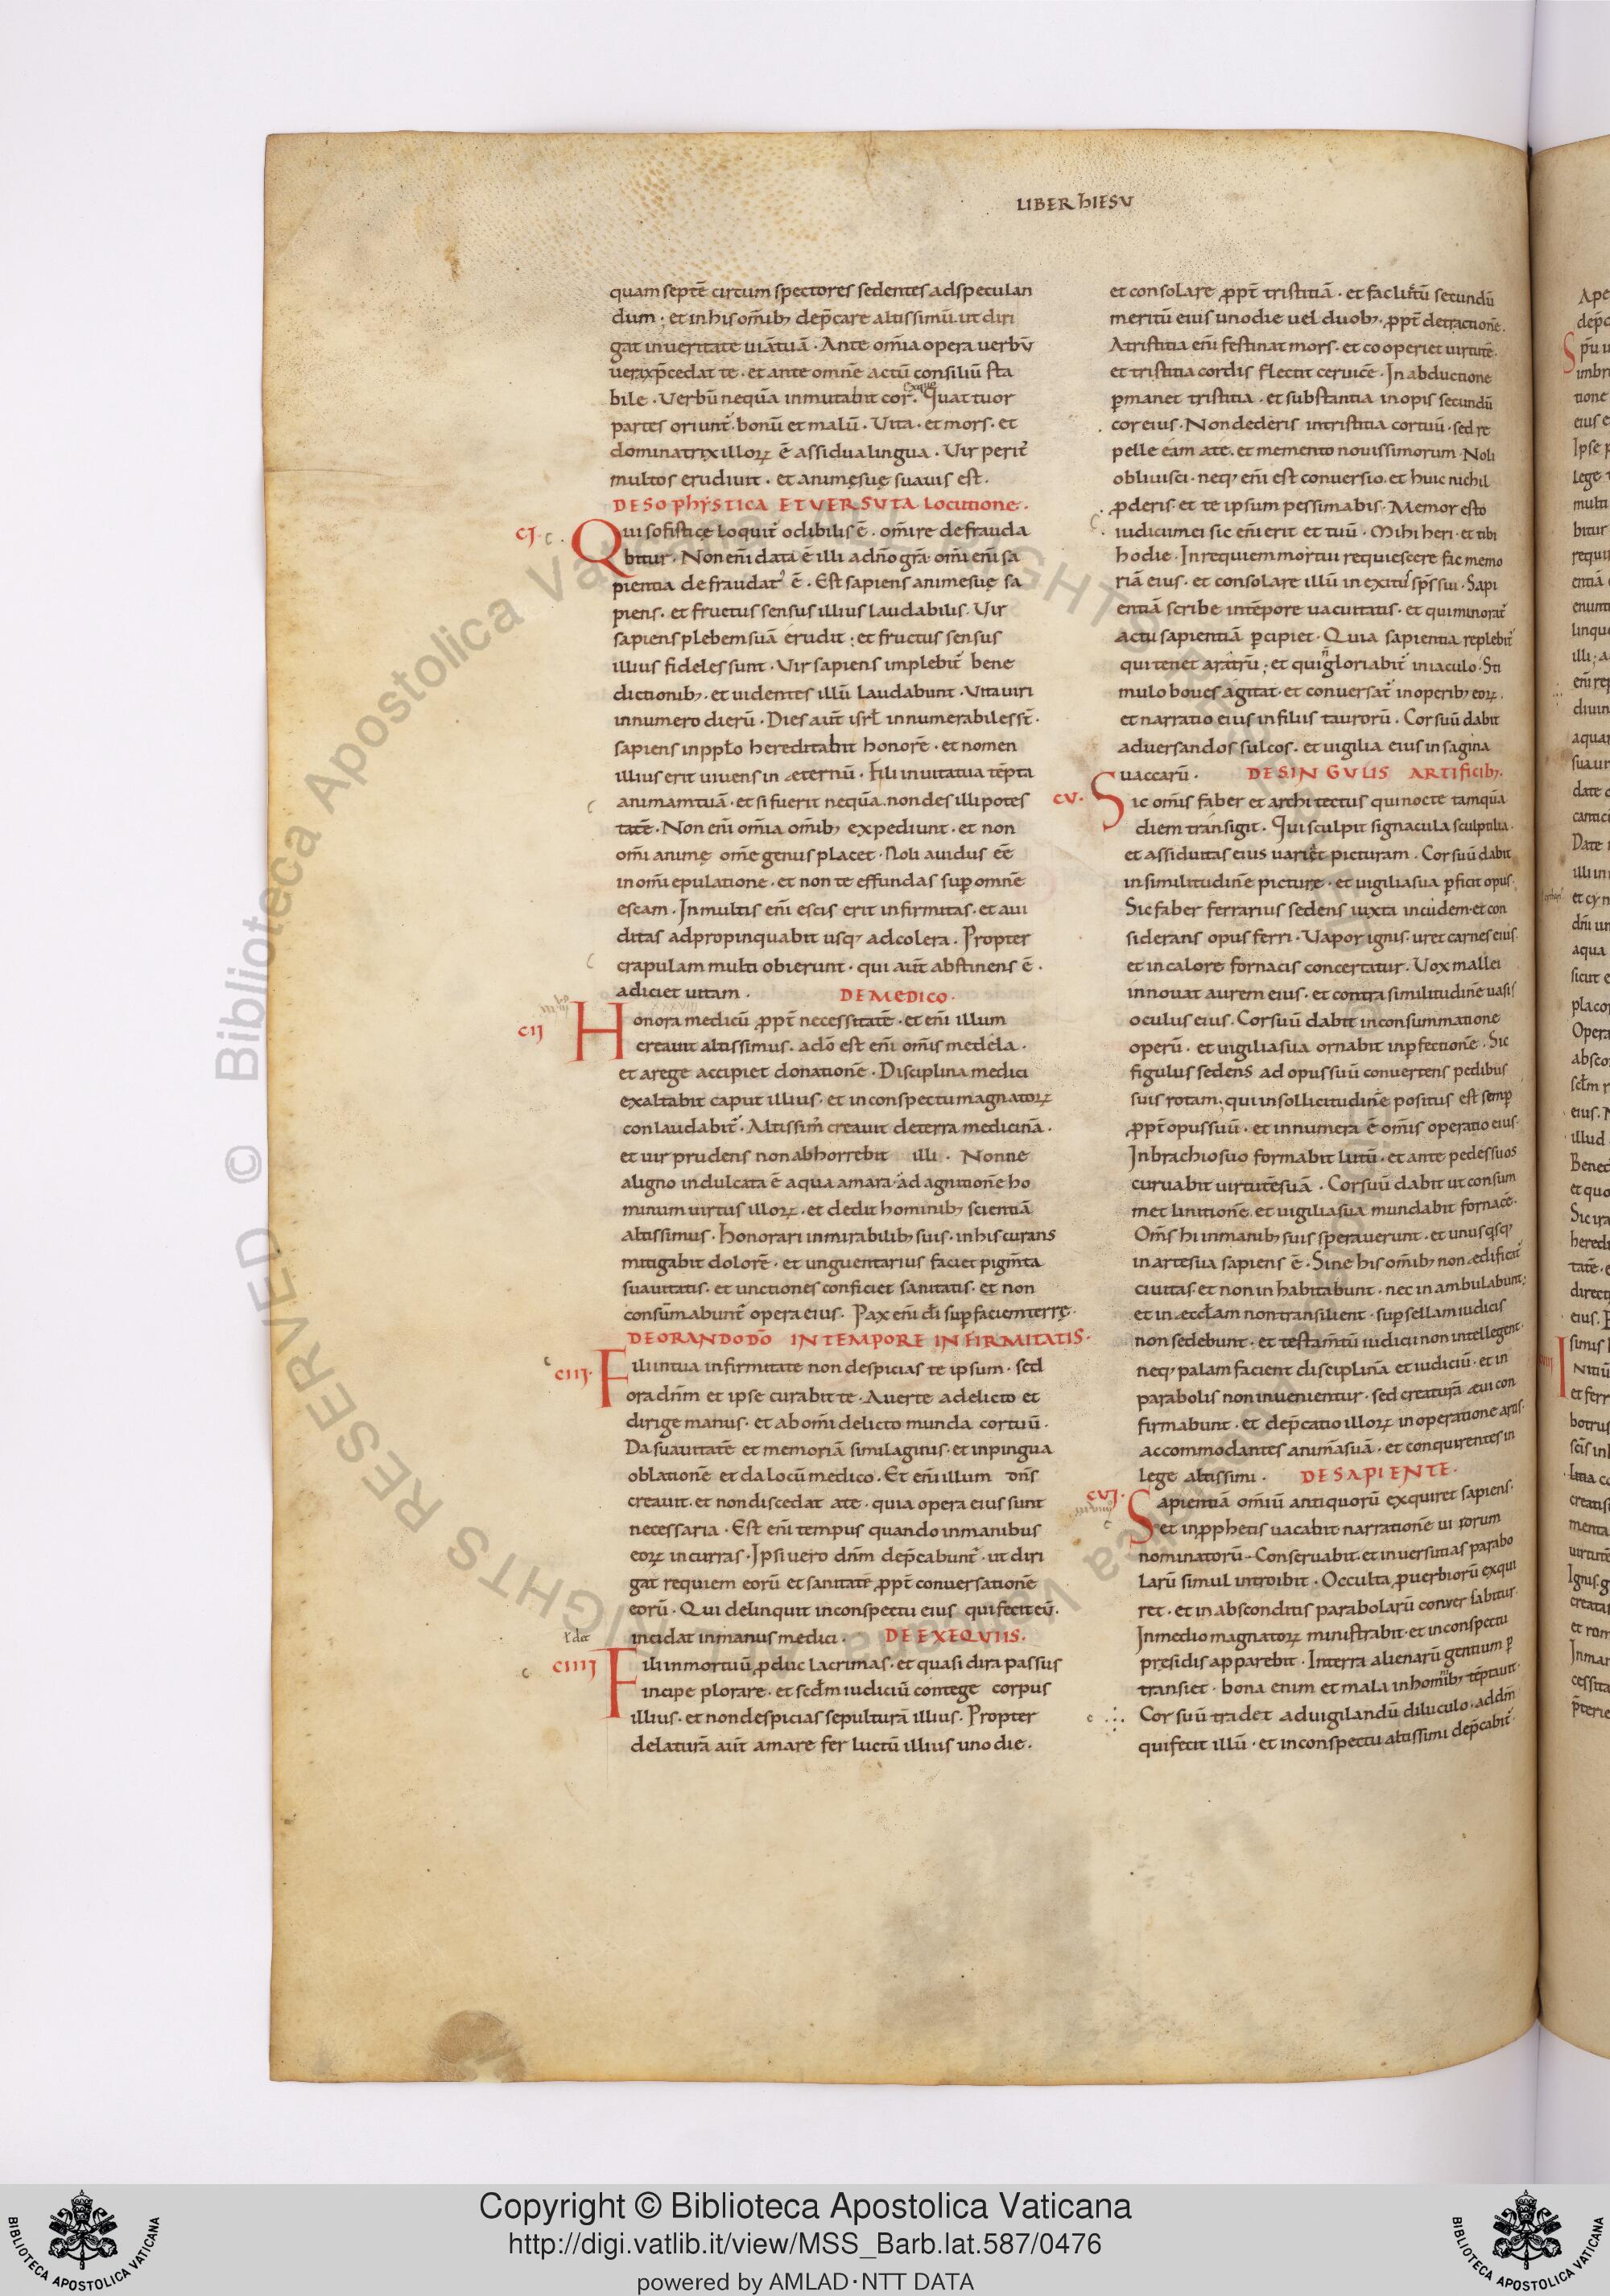 LIBER hIESV
quam septē circum spectores sedentes adspeculan
dum · et inhis om̄ib; dep̄care altissimū. ut diri
gat inueritate uiā tuā · Ante om̄ia opera uerbū
uerax p̄cedat te · et ante omnē actū consiliū sta
bile · Verbū nequā inmutabit cor · Quattuor
partes oriunt᷑ · bonū et malū · Vita · et mors · et
dominatrix illoꝝ ē assidua lingua · Vir perit᷑
multos erudiuit · et animę suę suauis est ·
DE SOPhYSTICA ET VERSVTA Locutione ·
CJ · Qui sofisticę loquit᷑ odibilis ē · om̄i re defrauda
bitur · Non eni data ē illi a dn̄o gr̄a · om̄i eni sa
pientia defraudat᷑ ē · Est sapiens animę suę sa
piens · et fructus sensus illius laudabilis · Vir
sapiens plebem suā erudit ; et fructus sensus
illius fideles sunt · Vir sapiens implebit᷑ bene
dictionib; · et uidentes illū laudabunt · Vita uiri
innumero dierū · Dies aut̄ isrł innumerabiles st̄ ·
sapiens inpplo hereditabit honorē · et nomen
illius erit uiuens in æternū · Fili inuita tua tēpta
animam tuā · et si fuerit nequā · non des illi potes
tatē · Non eni om̄ia om̄ib; expediunt · et non
om̄i animę om̄e genus placet · Noli auidus eē
in om̄i epulatione · et non te effundas sup omnē
escam · In multis eni escis erit infirmitas · et aui
ditas adpropinquabit usq; ad colera · Propter
crapulam multi obierunt · qui aut̄ abstinens ē ·
adiciet uitam · DE MEDICO ·
CIJ Honora medicū ꝓpt̄ necessitatē · et eni illum
creauit altissimus · a dō est eni om̄is medela ·
et a rege accipiet donationē · Disciplina medici
exaltabit caput illius · et inconspectu magnatoꝝ
conlaudabit᷑ · Altissim᷒ creauit de terra medicinā ·
et uir prudens non abhorrebit illi · Nonne
a ligno indulcata ē aqua amara · ad agnitionē ho
minum uirtus illoꝝ · et dedit hominib; scientiā
altissimus · honorari inmirabilib; suis · inhis curans
mitigabit dolorē · et unguentarius faciet pigm̄ta
suauitatis · et unctiones conficiet sanitatis · et non
consūmabunt᷑ opera eius · Pax eni dī sup faciem terrę ·
DE ORANDO DŌ IN TEMPORE INFIRMITATIS ·
CIIJ · Fili intua infirmitate non despicias te ipsum · sed
ora dnm̄ et ipse curabit te · Auerte a delicto et
dirige manus · et ab om̄i delicto munda cor tuū ·
Da suauitatē et memoriā similaginis · et inpingua
oblationē et da locū medico · Et eni illum dn̄s
creauit · et non discedat a te · quia opera eius sunt
necessaria · Est eni tempus quando inmanibus
eoꝝ incurras · Ipsi uero dnm̄ dep̄cabunt᷑ · ut diri
gat requiem eorū et sanitatē ꝓpt̄ conuersationē
eorū · Qui delinquit inconspectu eius qui fecit eū ·
incidat inmanus medici · DE EXEQVIIS ·
CIIIJ Fili inmortuū ꝓduc lacrimas · et quasi dira passus
incipe plorare · et scd̄m iudiciū contege corpus
illius · et non despicias sepulturā illius · Propter
delaturā aut̄ amare fer luctū illius uno die ·
et consolare ꝓpt̄ tristitiā · et fac luctū secundū
meritū eius uno die uel duob; · ꝓpt̄ detractionē ·
A tristitia eni festinat mors · et cooperiet uirtutē ·
et tristitia cordis flectit ceruicē · In abductione
ꝑmanet tristitia · et substantia inopis secundū
cor eius · Non dederis intristitia cor tuū · sed re
pelle eam a te · et memento nouissimorum · Noli
obliuisci · neq; eni est conuersio · et huic nichil
ꝓderis · et te ipsum pessimabis · Memor esto
iudicii mei sic eni erit et tuū · Mihi heri · et tibi
hodie · In requie mortui requiescere fac memo
riā eius · et consolare illū in exitu sp̄s sui · Sapi
entiā scribe intēpore uacuitatis · et qui minorat᷑
actu sapientiā ꝑcipiet · Quia sapientia replebit᷑
qui tenet aratrū ; et qui gloriabit᷑ in iaculo · Sti
mulo boues agitat · et conuersat᷑ in operib; eoꝝ ·
et narratio eius in filiis taurorū · Cor suū dabit
ad uersandos sulcos · et uigilia eius in sagina
uaccarū · DE SINGVLIS ARTificib; ·
CV · Sic om̄is faber et architectus qui nocte tamquā
diem transigit · Qui sculpit signacula sculptilia ·
et assiduitas eius uariet picturam · Cor suū dabit
in similitudinē picturę · et uigilia sua ꝑficit opus ·
Sic faber ferrarius sedens iuxta incudem · et con
siderans opus ferri · Vapor ignis · uret carnes eius ·
et in calore fornacis concertatur · Vox mallei
innouat aurem eius · et contra similitudinē uasis
oculus eius · Cor suū dabit inconsummatione
operū · et uigilia sua ornabit inꝑfectionē · Sic
figulus sedens ad opus suū conuertens pedibus
suis rotam · qui insollicitudinē positus est semꝑ
ꝓpt̄ opus suū · et innumera ē om̄is operatio eius ·
In brachio suo formabit lutū · et ante pedes suos
curuabit uirtutē suā · Cor suū dabit ut consum
met linitionē · et uigilia sua mundabit fornacē ·
Om̄s hi inmanib; suis sperauerunt · et unusqsq;
in arte sua sapiens ē · Sine his om̄ib; non ædificat᷑
ciuitas · et non inhabitabunt · nec inambulabunt ;
et in æccl̄am non transilient · sup sellam iudicis
non sedebunt · et testam̄tū iudicii non intellegent ·
neq; palam facient disciplinā et iudiciū · et in
parabolis non inuenientur · sed creaturā æui con
firmabunt · et dep̄catio illoꝝ in operatione artis ·
accommodantes animā suā · et conquirentes in
lege altissimi · DE SAPIENTE ·
CVJ · Sapientiā om̄iū antiquorū exquiret sapiens ·
et inꝓphetis uacabit narrationē uirorum
nominatorū · Conseruabit · et inuersutias parabo
larū simul introibit · Occulta ꝓuerbiorū exqui
ret · et inabsconditis parabolarū conuersabitur ·
In medio magnatoꝝ ministrabit · et inconspectu
pręsidis apparebit · In terra alienarū gentium ꝑ
transiet · bona enim et mala in homib; tēptauit ·
Cor suū tradet ad uigilandū diluculo · ad dnm̄
qui fecit illū · et inconspectu altissimi dep̄cabit᷑ ·
Copyright © Biblioteca Apostolica Vaticana
http://digi.vatlib.it/view/MSS_Barb.lat.587/0476
powered by AMLAD·NTT DATA